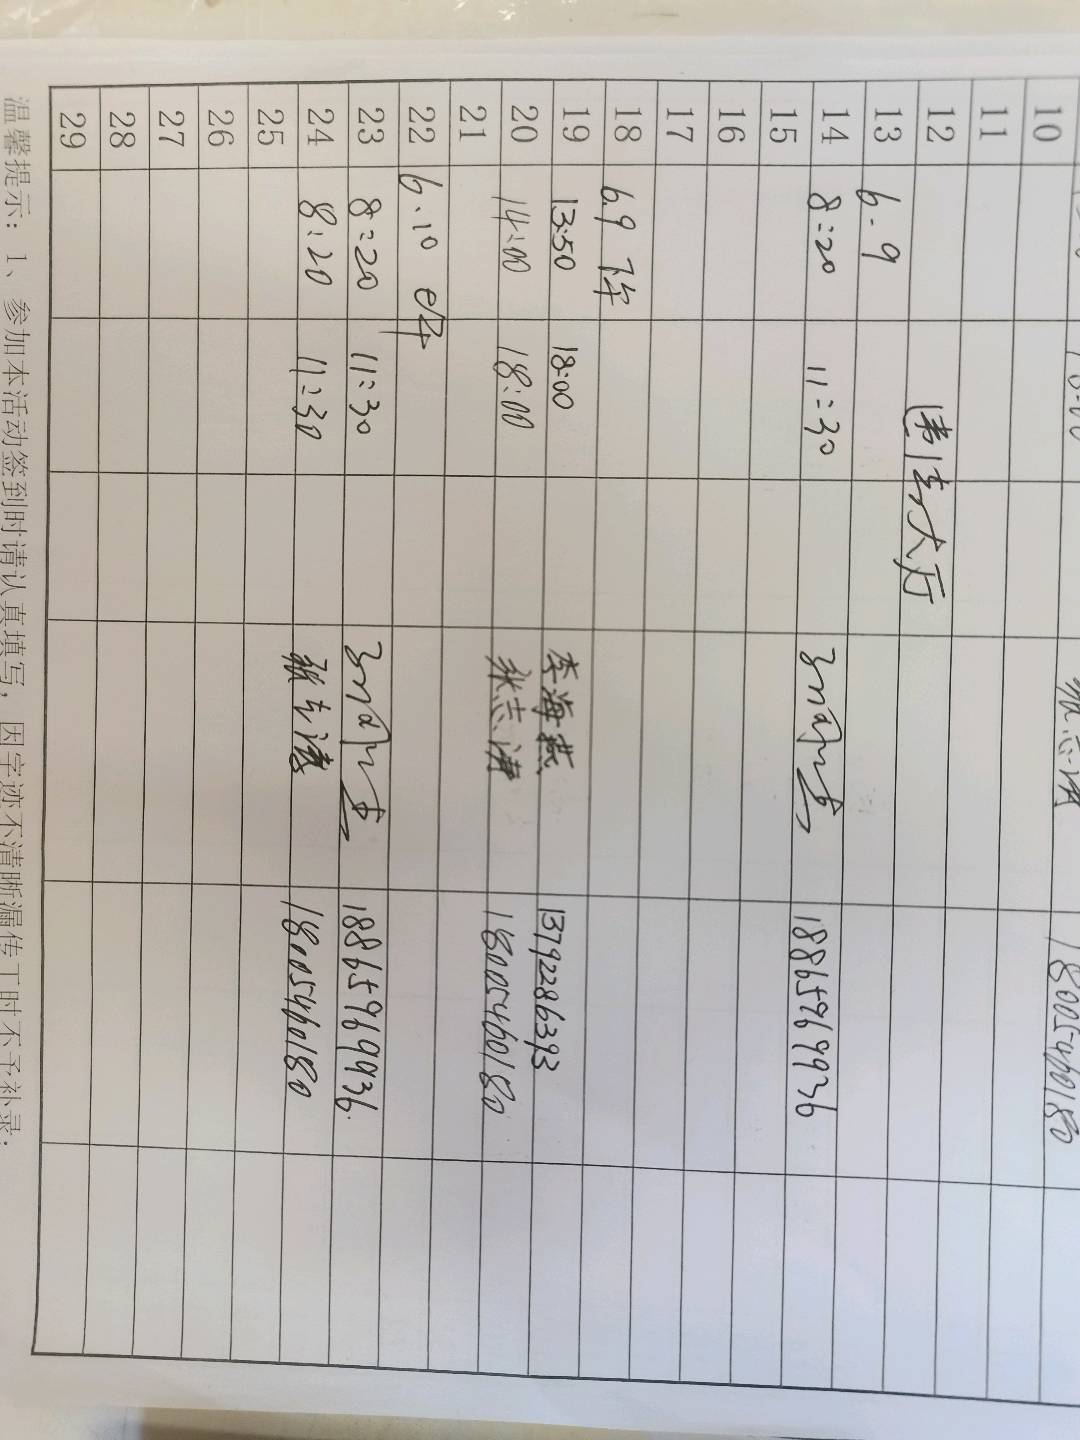 10 18:00 18005460180
11
12 大厅
13 6.9
14 8:20 11:30 18865969936
15
16
17
18 6.9 下午
19 13:50 18:00 李海燕 13792286393
20 14:00 18:00 张志涛 18005460180
21
22 6.10
23 8:20 11:30 18865969936
24 8:20 11:30 张志涛 18005460180
25
26
27
28
29
温馨提示：1、参加本活动签到时请认真填写，因字迹不清晰漏传工时不予补录；